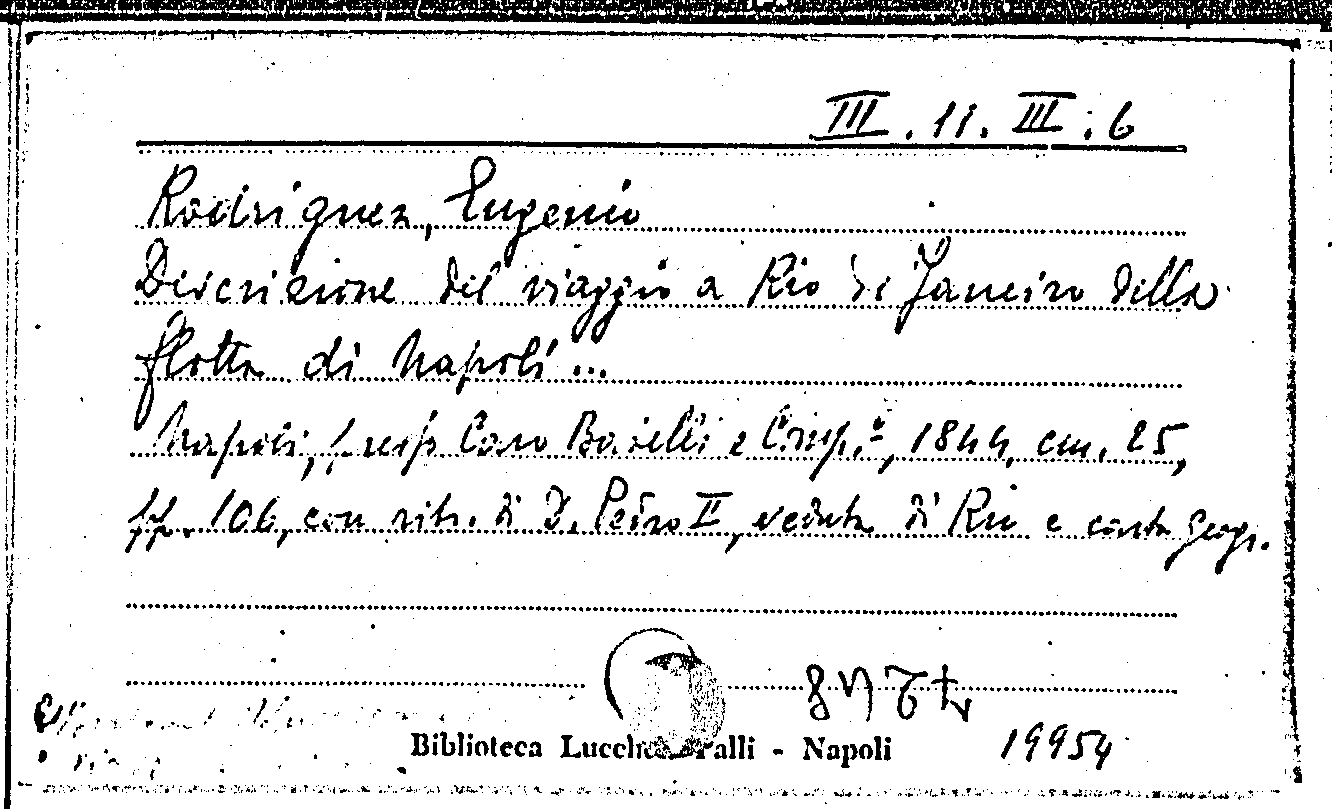 III. 11. III. 6
Rodriguez, Eugenio
Descrizione del viaggio a Rio di Janeiro della
flotta di Napoli ...
Napoli, presso Caro Batelli e Comp.º, 1844, cm. 25,
pp. 106, con ritr. di D. Pedro II, veduta di Rio e carta geogr.
Biblioteca Lucchesi Palli - Napoli
19954